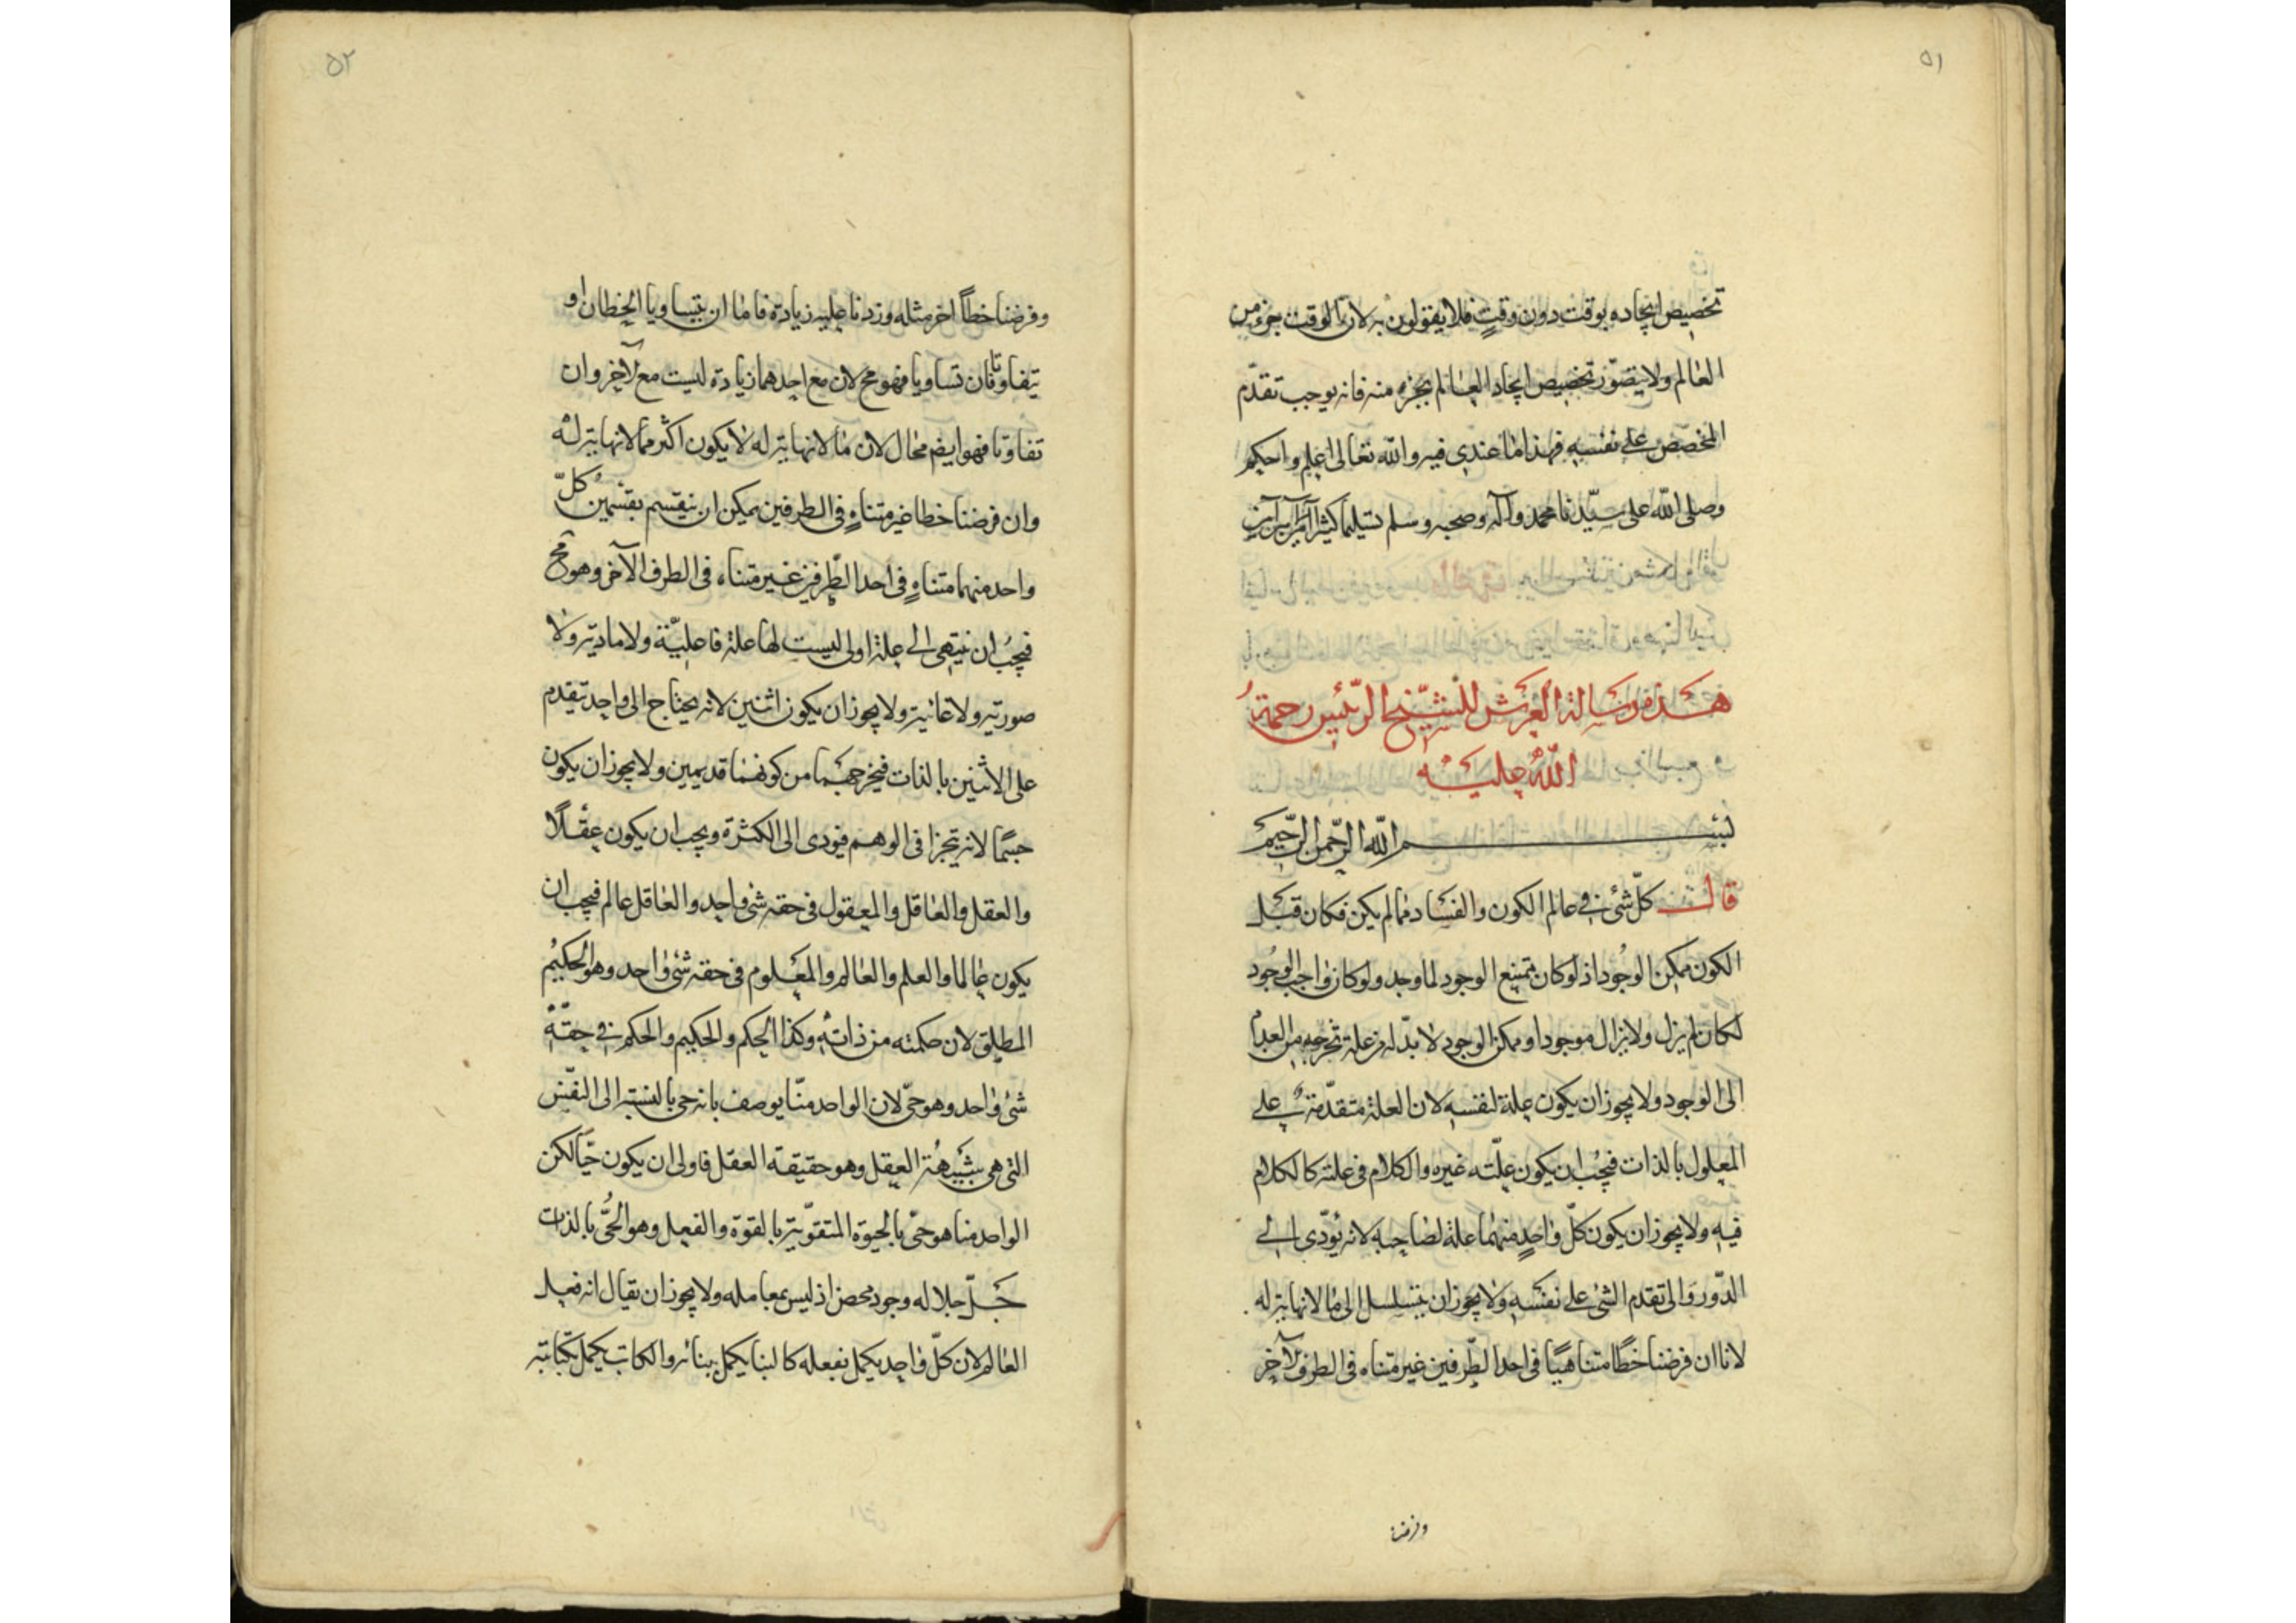 ٥١
تخصيص ايجاده بوقت دون وقتٍ فلا يقولون به لان الوقت جزء من
العالم ولا يتصوّر تخصيص ايجاد العالم بجزء منه فانه يوجب تقدّم
المخصّص على نفسه فهذا ما عندى فيه والله تعالى اعلم واحكم
وصلى الله على سيّدنا محمد وآله وصحبه وسلم تسليما كثيرا
هذه رسالة العرش للشيخ الرئيس رحمة
الله عليه
بسم الله الرحمن الرحيم
قال كلّ شئ فى عالم الكون والفساد مما لم يكن فكان قبل
الكون ممكن الوجود اذ لو كان ممتنع الوجود لما وجد ولو كان واجب الوجود
لكان لم يزل ولا يزال موجودا وممكن الوجود لا بدّ له من علة تخرجه من العدم
الى الوجود ولا يجوز ان يكون علة لنفسه لان العلة متقدّمة على
المعلول بالذات فيجب ان يكون علّته غيره والكلام فى علته كالكلام
فيه ولا يجوز ان يكون كلّ واحدٍ منهما علة لصاحبه لانه يؤدّى الى
الدّور والى تقدم الشئ على نفسه ولا يجوز ان يتسلسل الى ما لا نهاية له
لانا ان فرضنا خطّا متناهيا فى احد الطّرفين غير متناه فى الطرف الآخر
وفرضنا
٥٢
وفرضنا خطّاً اخر مثله وزدنا عليه زيادة فاما ان يتساويا الخطان او
يتفاوتا فان تساويا فهو مح لان مع احدهما زيادة ليست مع الآخر وان
تفاوتا فهو ايضم محال لان ما لا نهاية له لا يكون اكثر مما لا نهاية له
وان فرضنا خطا غير متناهٍ فى الطرفين يمكن ان ينقسم بقسمين كلّ
واحد منهما متناهٍ فى احد الطّرفين غير متناه فى الطرف الآخر وهو مح
فيجب ان ينتهى الى علة اولى ليست لها علة فاعليّة ولا مادية ولا
صورتيه ولا غائية ولا يجوز ان يكون اثنين لانه يحتاج الى واحد يتقدم
على الاثنين بالذات فيخرجهما من كونهما قديمين ولا يجوز ان يكون
جسمًا لانه يتجزا فى الوهم فيودى الى الكثرة ويجب ان يكون عقلًا
والعقل والعاقل والمعقول فى حقه شئ واحد والعاقل عالم فيجب ان
يكون عالما والعلم والعالم والمعلوم فى حقه شئ واحد وهو الحكيم
المطلق لان حكمته من ذاته وكذا الحكم والحكيم والحكم فى حقّه
شئ واحد وهو حىّ لان الواحد منّا يوصف بانه حى بالنسبة الى النفس
التى هى شبيهة العقل وهو حقيقة العقل فاولى ان يكون حيّا لكن
الواحد منا هو حىّ بالحيوة المتقوّية بالقوة والفعل وهو الحىّ بالذات
جلّ جلاله وجود محض اذ ليس بمعامله ولا يجوز ان يقال انه فعل
العالم لان كلّ واحد يكمل بفعله كالبنا يكمل ببنائه والكاتب يكمل بكتابته